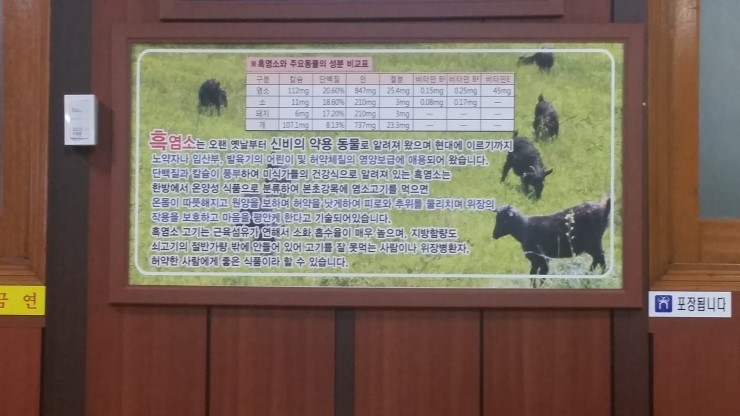 ※흑염소와 주요동물의 성분 비교표
구분 칼슘 단백질 인 철분 비타민 B¹ 비타민 B² 비타민E
염소 112mg 20.60% 847mg 25.4mg 0.15mg 0.25mg 45mg
소 11mg 18.60% 210mg 3mg 0.08mg 0.17mg —
돼지 6mg 17.20% 210mg 3mg — — —
개 107.1mg 8.13% 737mg 23.3mg — — —
흑염소는 오랜 옛날부터 신비의 약용 동물로 알려져 왔으며 현대에 이르기까지
노약자나 임산부, 발육기의 어린이 및 허약체질의 영양보급에 애용되어 왔습니다.
단백질과 칼슘이 풍부하여 미식가들의 건강식으로 알려져 있는 흑염소는
한방에서 온양성 식품으로 분류하여 본초강목에 염소고기를 먹으면
온몸이 따뜻해지고 원양을 보하며 허약을 낫게하여 피로와 추위를 물리치며 위장의
작용을 보호하고 마음을 평안케 한다고 기술되어있습니다.
흑염소 고기는 근육섬유가 연해서 소화 흡수율이 매우 높으며, 지방함량도
쇠고기의 절반가량 밖에 안들어 있어 고기를 잘 못먹는 사람이나 위장병환자,
허약한 사람에게 좋은 식품이라 할 수 있습니다.
금 연
포장됩니다